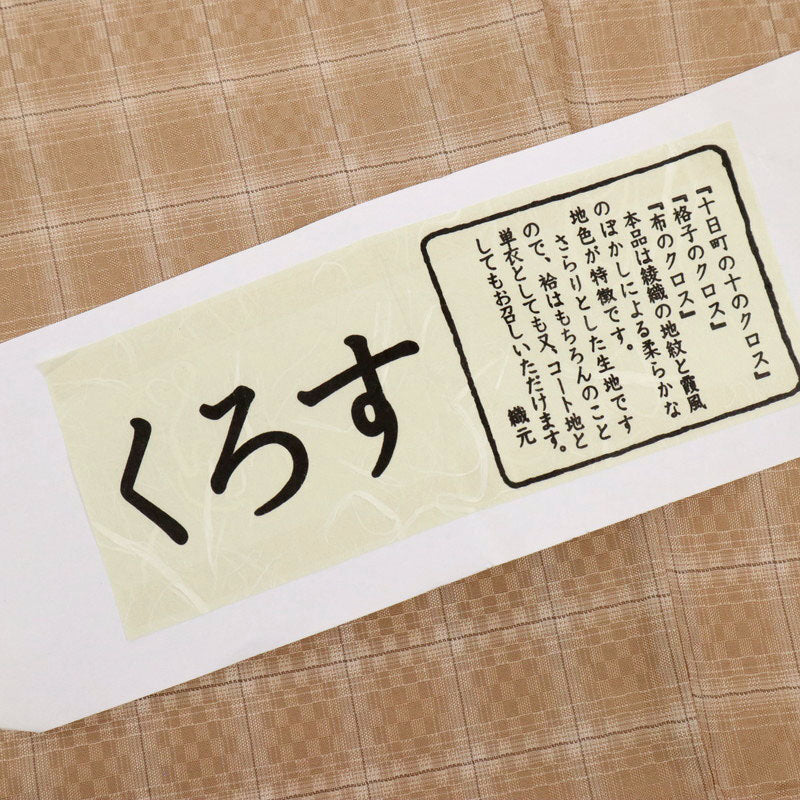 『十日町の十のクロス』
『格子のクロス』
『布のクロス』
本品は綾織の地紋と霞風
のぼかしによる柔らかな
地色が特徴です。
さらりとした生地です
ので、袷はもちろんのこと
単衣としても又、コート地と
してもお召しいただけます。
織元
くろす